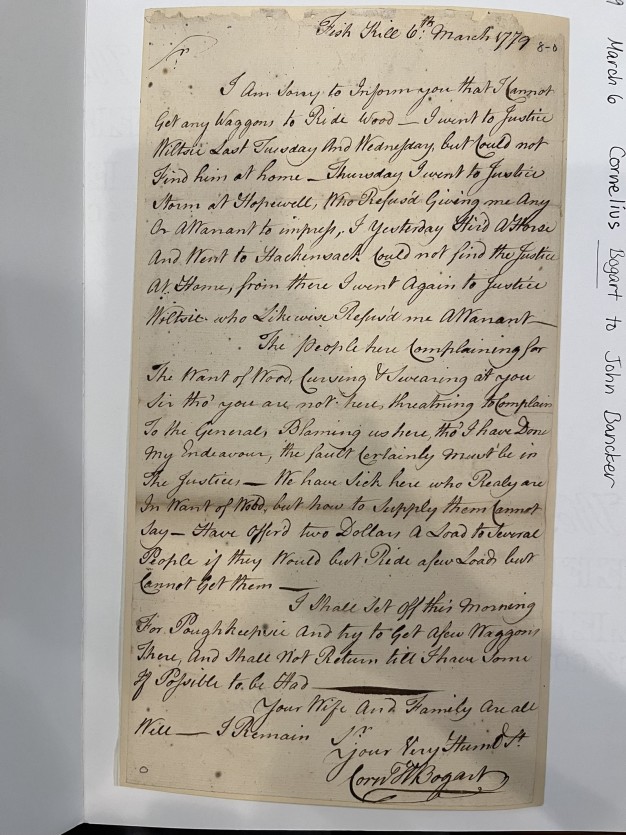 Fish Kill 6.th March 1779 8-0
Sr
I Am Sorry to Inform you that I Cannot
Get any Waggons to Ride Wood — I went to Justice
Wiltsie Last Tuesday And Wednesday, but Could not
Find him at home — Thursday I went to Justice
Storm at Hopewell, Who Refus'd Giving me Any
Or A Warrant to impress, I Yesterday Hir'd A Horse
And Went to Hackensack Could not find the Justice
At Home, from there I went Again to Justice
Wiltsie who Likewise Refus'd me A Warrant —
The People here Complaining for
The Want of Wood, Cursing & Swearing at you
Sir tho' you are not here, threatning to Complain
To the General, Blaming us here, tho' I have Done
My Endeavour, the fault Certainly must be in
The Justices — We have Sick here who Realy are
In Want of Wood, but how to Supply them Cannot
Say — Have Offer'd two Dollars A Load to Several
People if they Would but Ride a few Loads but
Cannot Get them —
I Shall Set Off this Morning
For Poughkeepsie And try to Get A few Waggons
There, And Shall Not Return till I have Some
If Possible to be Had —
Your Wife And Family Are all
Well — I Remain Sr
Your Very Humbl St.
Corns Bogart
March 6 Cornelius Bogart to John Bancker